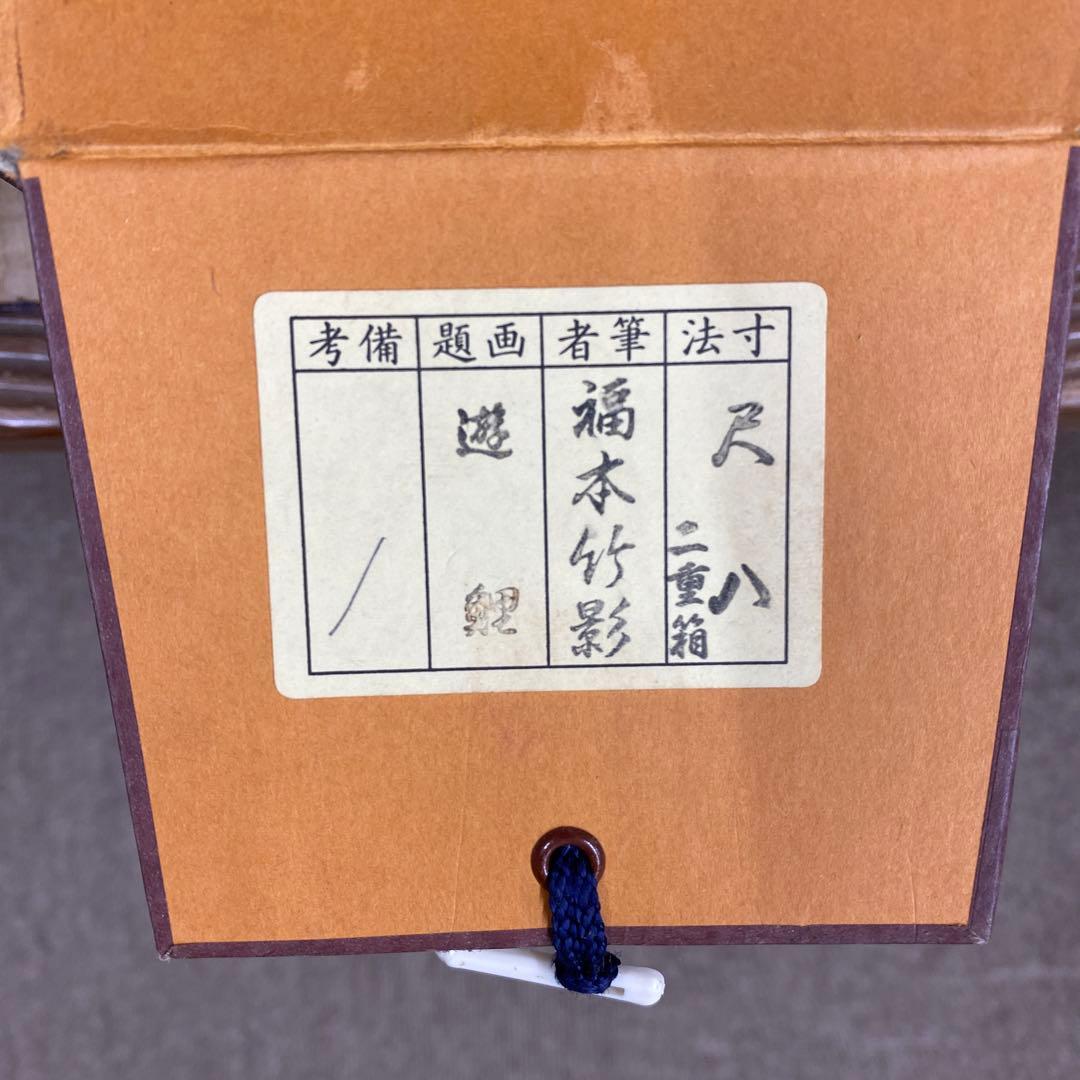 寸法
尺八
二重箱
筆者
福本竹影
画題
遊鯉
備考